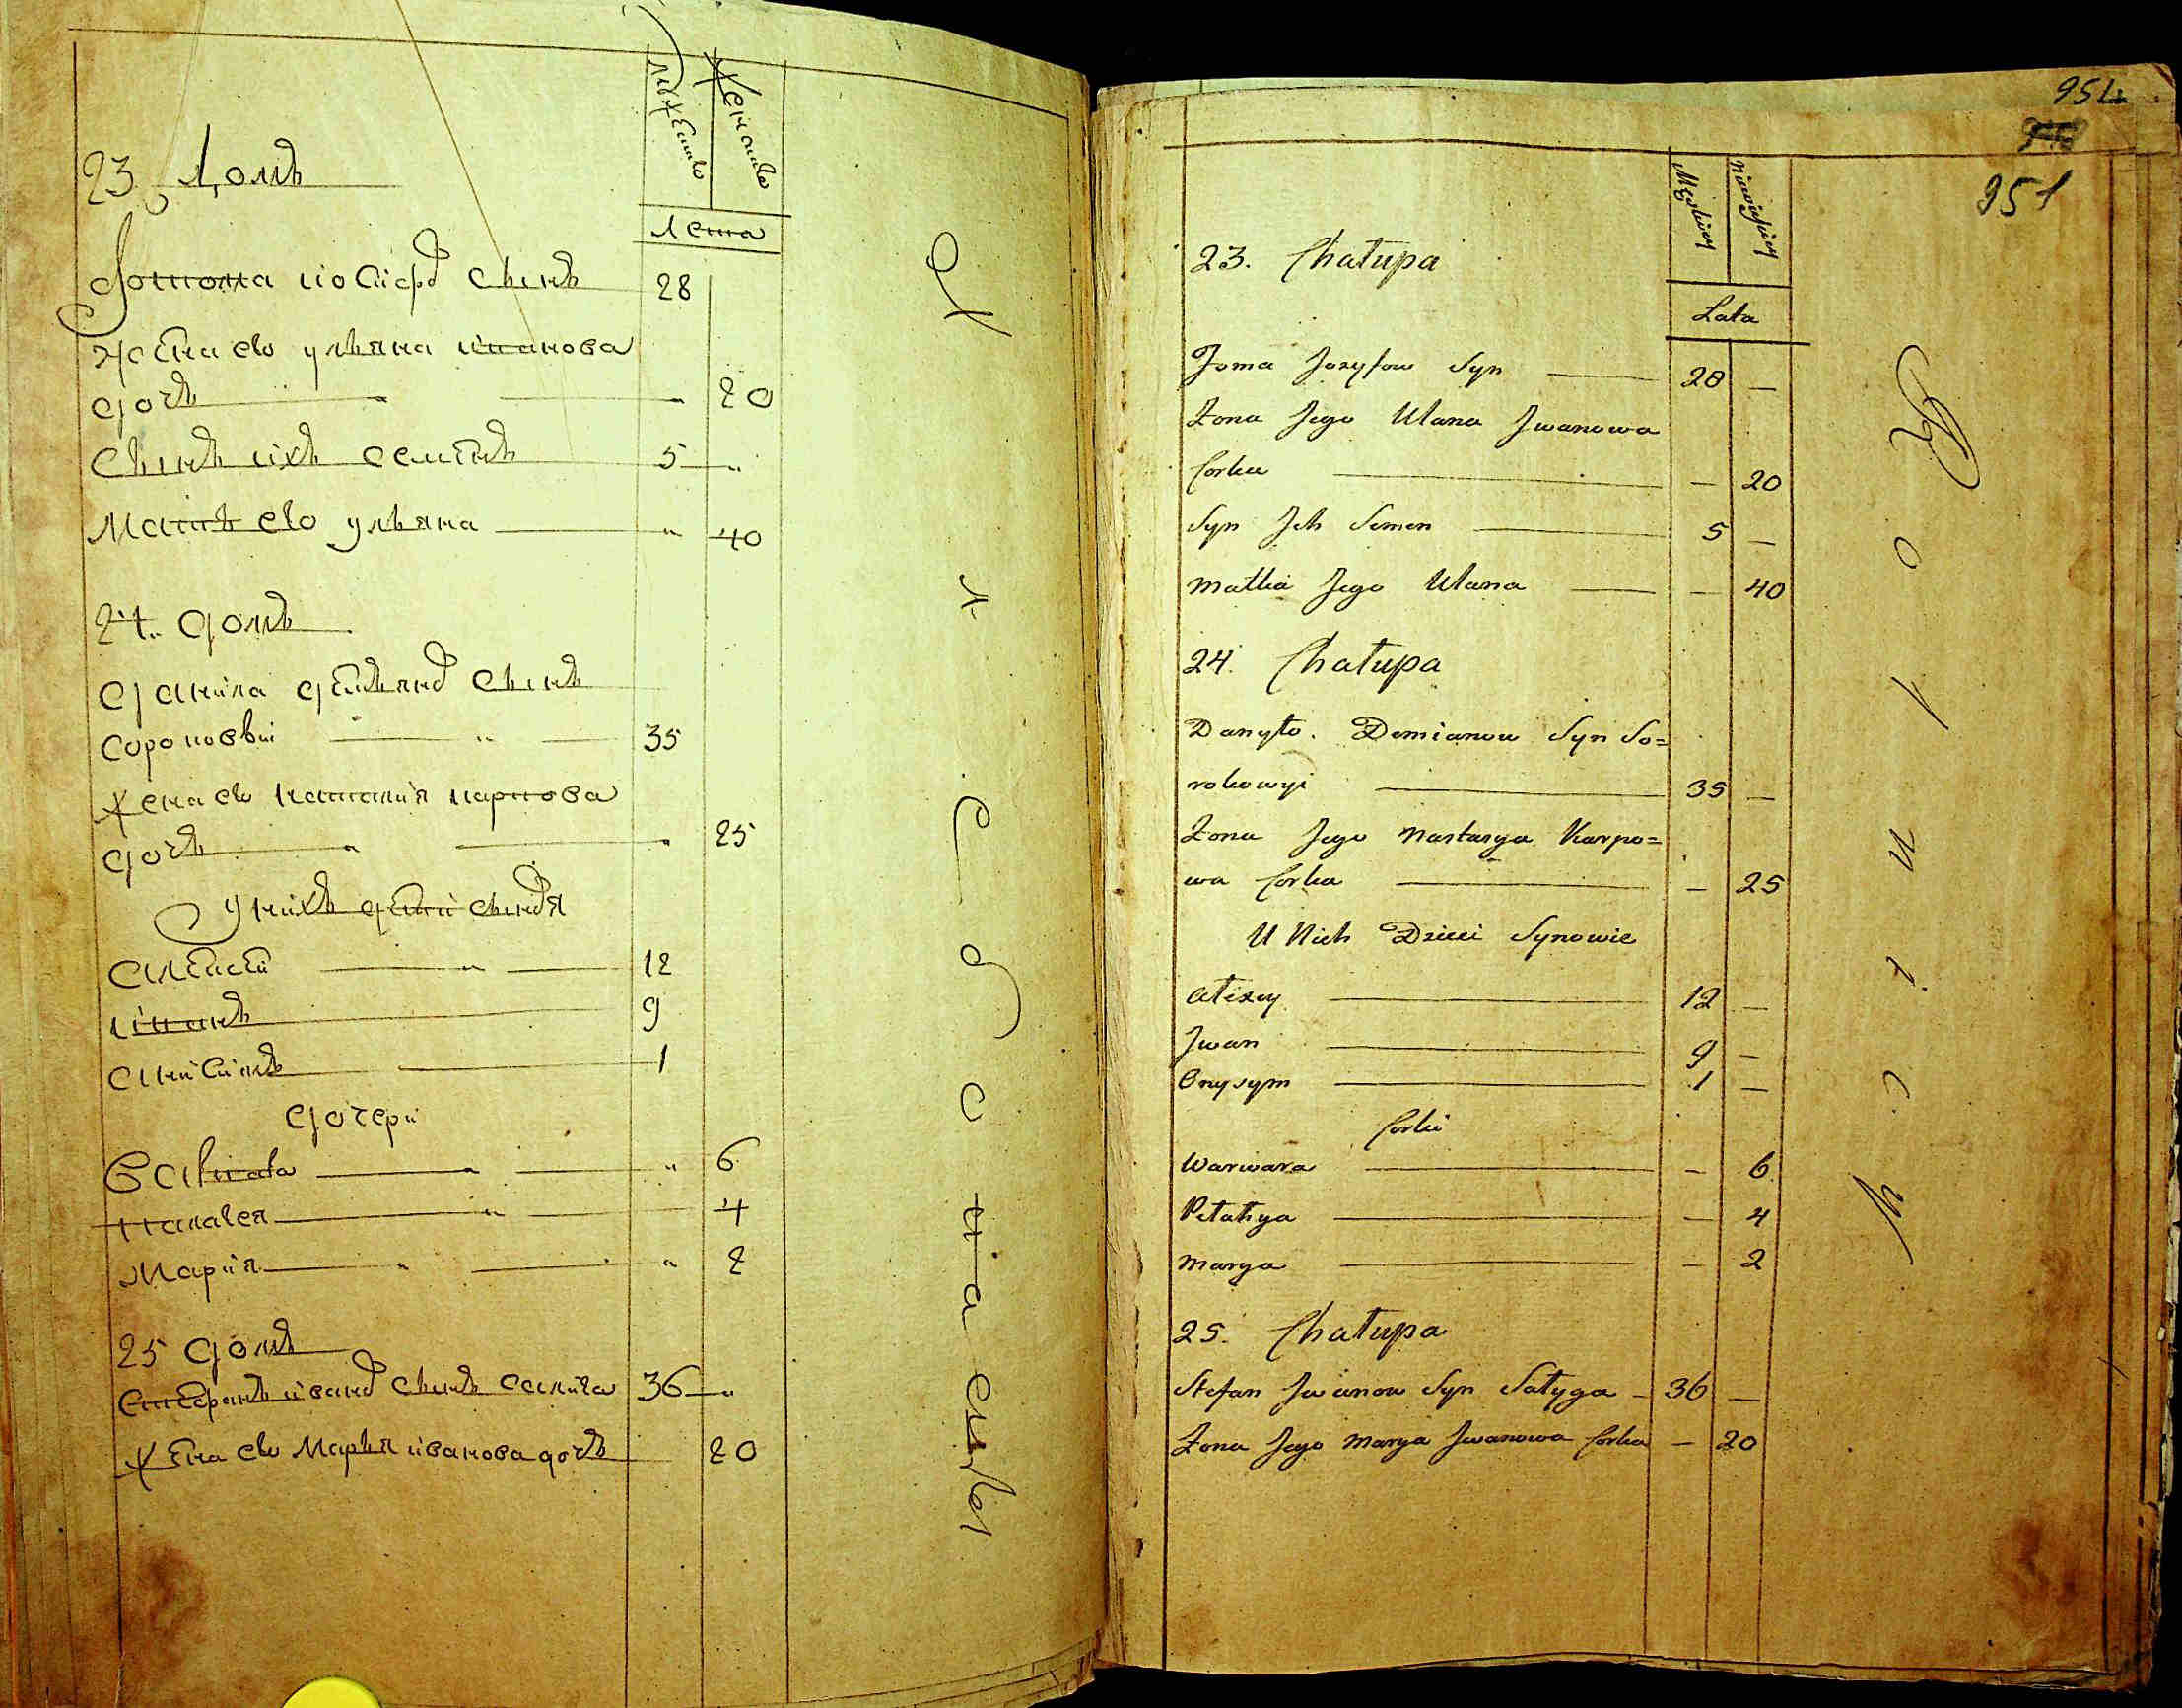 23 Домъ
Мужескъ
Женскъ
Лета
Фотома иосифов сынъ 28
жена его ульяна иванова
дочь 20
сынъ ихъ семенъ 5
Мать его ульяна 40
24. домъ
данила демьянов сынъ
сороповы 35
жена его наталия карпова
дочь 25
у нихъ дети сыновя
алексей 12
иванъ 9
анисимъ 1
дочери
6
палагея 4
Мария 2
25 домъ
Стефанъ иванов сынъ салига 36
жена его Марья иванова дочь 20
954
951
Męskiey
Niewieskiey
Lata
23. Chałupa
Foma Jozyfow Syn — 28 —
Żona Jego Ulana Jwanowa
Corka — — 20
Syn Jch Semen — 5 —
Matka Jego Ulana — — 40
24. Chałupa
Danyło. Demianow Syn So=
rokowyi — 35 —
Żona Jego Nastasya Karpo=
wa Corka — — 25
U Nich Dzieci Synowie
Alexey — 12 —
Jwan — 9 —
Onysym — 1 —
Corki
Warwara — — 6
Pelahya — — 4
Marya — — 2
25. Chałupa
Stefan Jwanow Syn Sałyga — 36 —
Żona Jego Marya Jwanowa Corka — 20